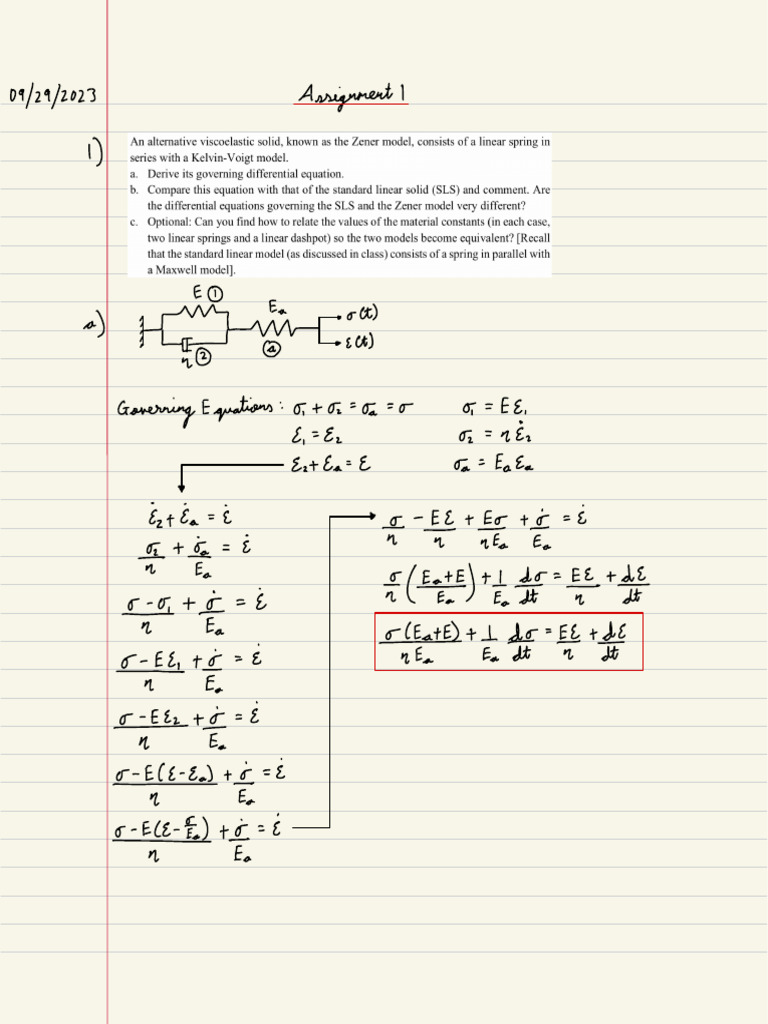 09/29/2023
Assignment 1
1)
An alternative viscoelastic solid, known as the Zener model, consists of a linear spring in
series with a Kelvin-Voigt model.
a. Derive its governing differential equation.
b. Compare this equation with that of the standard linear solid (SLS) and comment. Are
the differential equations governing the SLS and the Zener model very different?
c. Optional: Can you find how to relate the values of the material constants (in each case,
two linear springs and a linear dashpot) so the two models become equivalent? [Recall
that the standard linear model (as discussed in class) consists of a spring in parallel with
a Maxwell model].
a)
E ①
Eₐ
σ(t)
ε(t)
η ②
ⓐ
Governing Equations: σ₁ + σ₂ = σₐ = σ σ₁ = Eε₁
ε₁ = ε₂ σ₂ = ηε̇₂
ε₂ + εₐ = ε σₐ = Eₐεₐ
ε̇₂ + ε̇ₐ = ε̇
σ₂/η + σ̇ₐ/Eₐ = ε̇
(σ - σ₁)/η + σ̇/Eₐ = ε̇
(σ - Eε₁)/η + σ̇/Eₐ = ε̇
(σ - Eε₂)/η + σ̇/Eₐ = ε̇
(σ - E(ε - εₐ))/η + σ̇/Eₐ = ε̇
(σ - E(ε - σ/Eₐ))/η + σ̇/Eₐ = ε̇
σ/η - Eε/η + Eσ/(ηEₐ) + σ̇/Eₐ = ε̇
σ/η ((Eₐ+E)/Eₐ) + 1/Eₐ dσ/dt = Eε/η + dε/dt
σ(Eₐ+E)/(ηEₐ) + 1/Eₐ dσ/dt = Eε/η + dε/dt